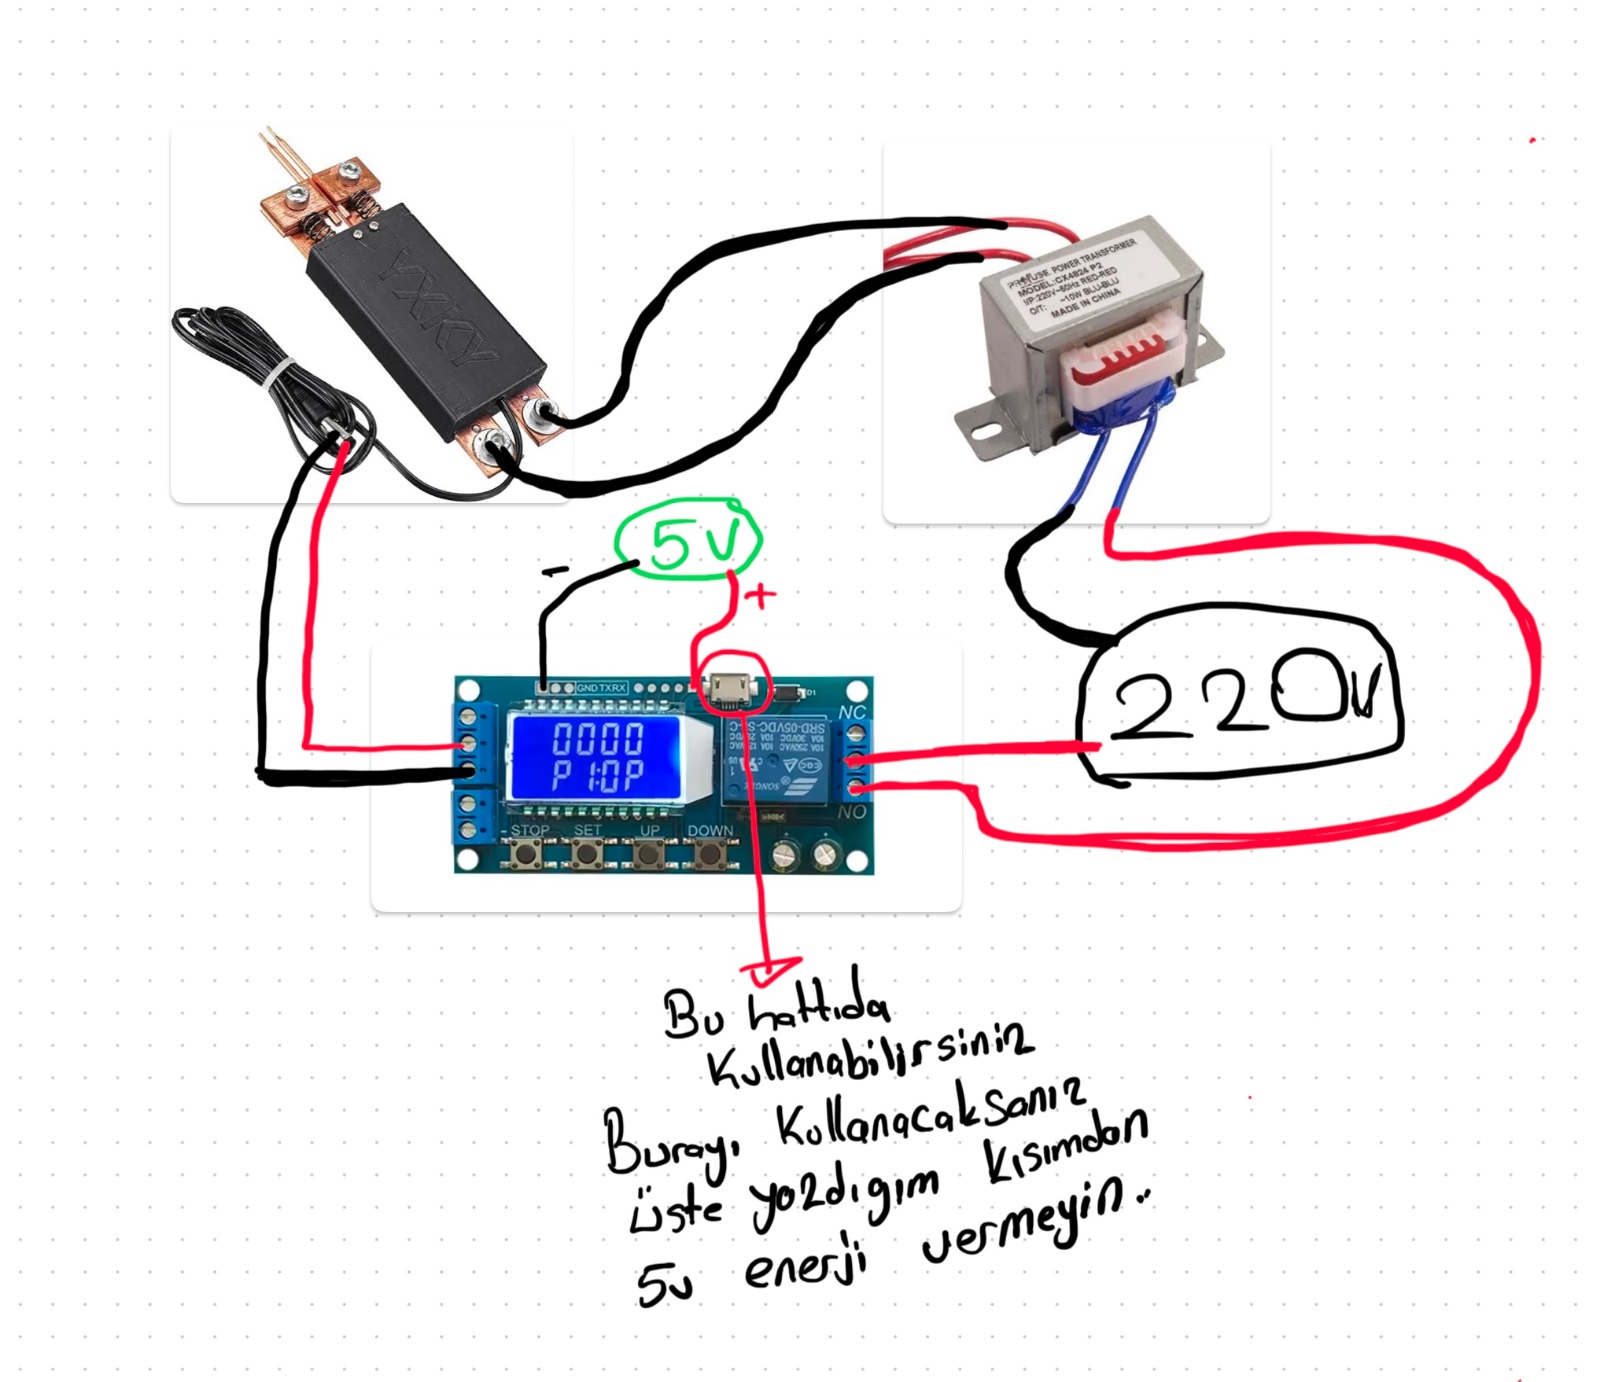 YXKY
PROFUSE. POWER TRANSFORMER
MODEL:CX4824 P2
I/P:220V~50Hz RED-RED
O/T: ~10W BLU-BLU
MADE IN CHINA
5V
-
+
220V
GND TX RX
D1
NC
SRD-05VDC-SL-C
10A 250VAC 10A 125VAC
10A 30VDC 10A 28VDC
SONGLE
0000
P1:0P
NO
STOP SET UP DOWN
Bu hattıda
kullanabilirsiniz
Burayı kullanacaksanız
üste yazdıgım kısımdan
5v enerji vermeyin..